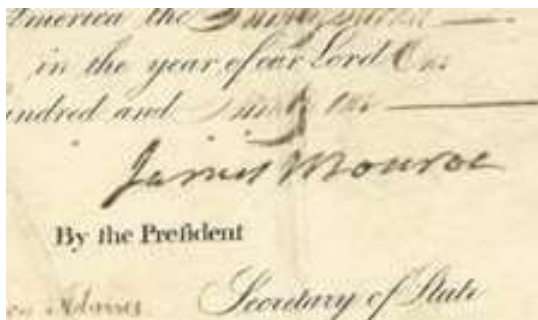 America the
in the year of our Lord One
undred and
James Monroe
By the Preſident
Adams Secretary of State